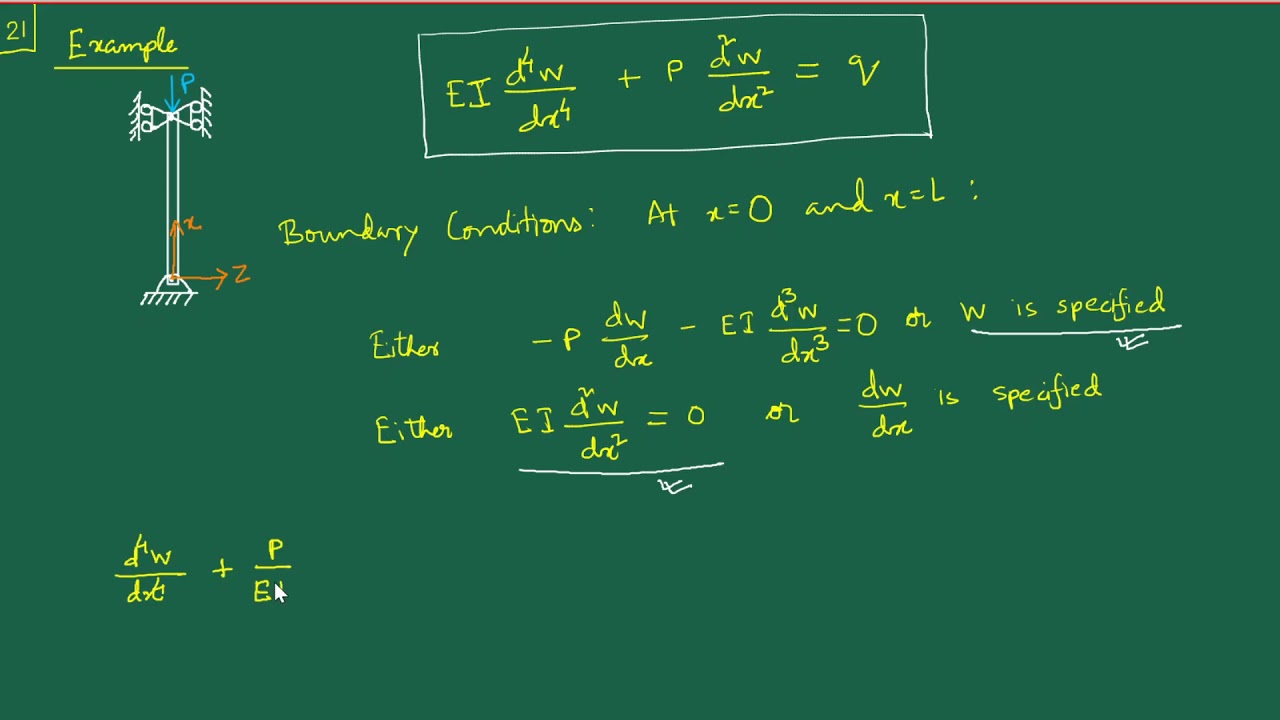 21
Example
P
x
Z
EI d⁴w/dx⁴ + P d²w/dx² = q
Boundary Conditions: At x=0 and x=L :
Either -P dw/dx - EI d³w/dx³ =0 or w is specified
Either EI d²w/dx² = 0 or dw/dx is specified
d⁴w/dx⁴ + P/EI